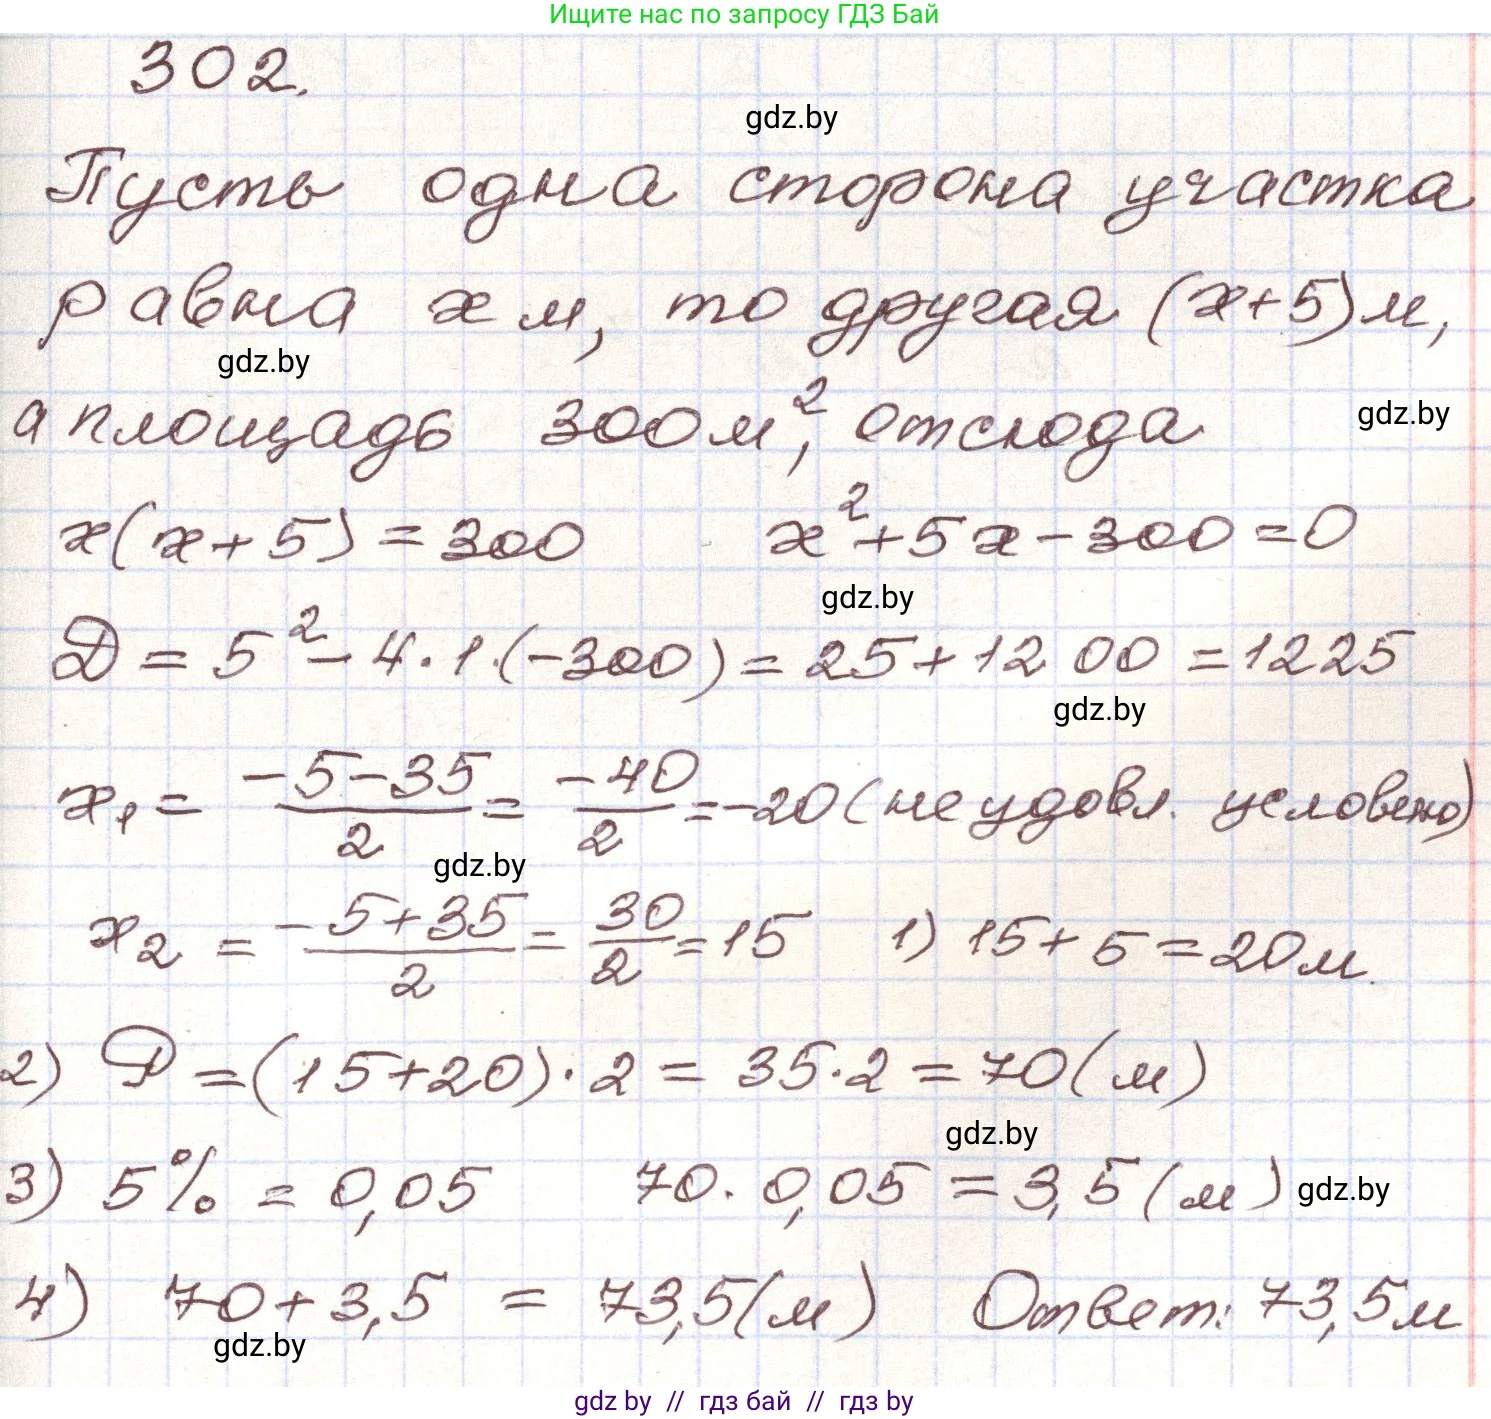 Ищите нас по запросу ГДЗ Бай
302.
gdz.by
Пусть одна сторона участка
равна x м, то другая (x+5) м,
gdz.by
а площадь 300 м², отсюда
gdz.by
x(x+5)=300 x²+5x-300=0
gdz.by
D = 5² - 4·1·(-300) = 25+1200 = 1225
gdz.by
x₁ = (-5-35)/2 = -40/2 = -20 (не удовл. условию)
gdz.by
x₂ = (-5+35)/2 = 30/2 = 15 1) 15+5=20 м.
2) P = (15+20)·2 = 35·2 = 70 (м)
gdz.by
3) 5% = 0,05 70·0,05 = 3,5 (м)
gdz.by
4) 70+3,5 = 73,5 (м) Ответ: 73,5 м
gdz.by
gdz by // гдз бай // гдз by